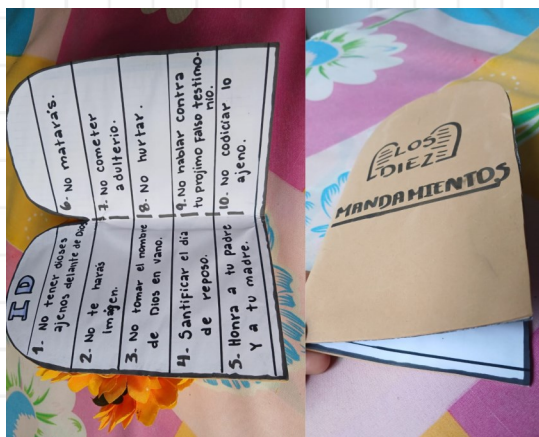 I D
1. No tener dioses
ajenos delante de Dios
2. No te harás
imagen.
3. No tomar el nombre
de Dios en vano.
4. Santificar el día
de reposo.
5. Honra a tu padre
Y a tu madre.
6. No matarás.
7. No cometer
adulterio.
8. No hurtar.
9. No hablar contra
tu projimo falso testimo-
nio.
10. No codiciar lo
ajeno.
LOS
DIEZ
MANDAMIENTOS